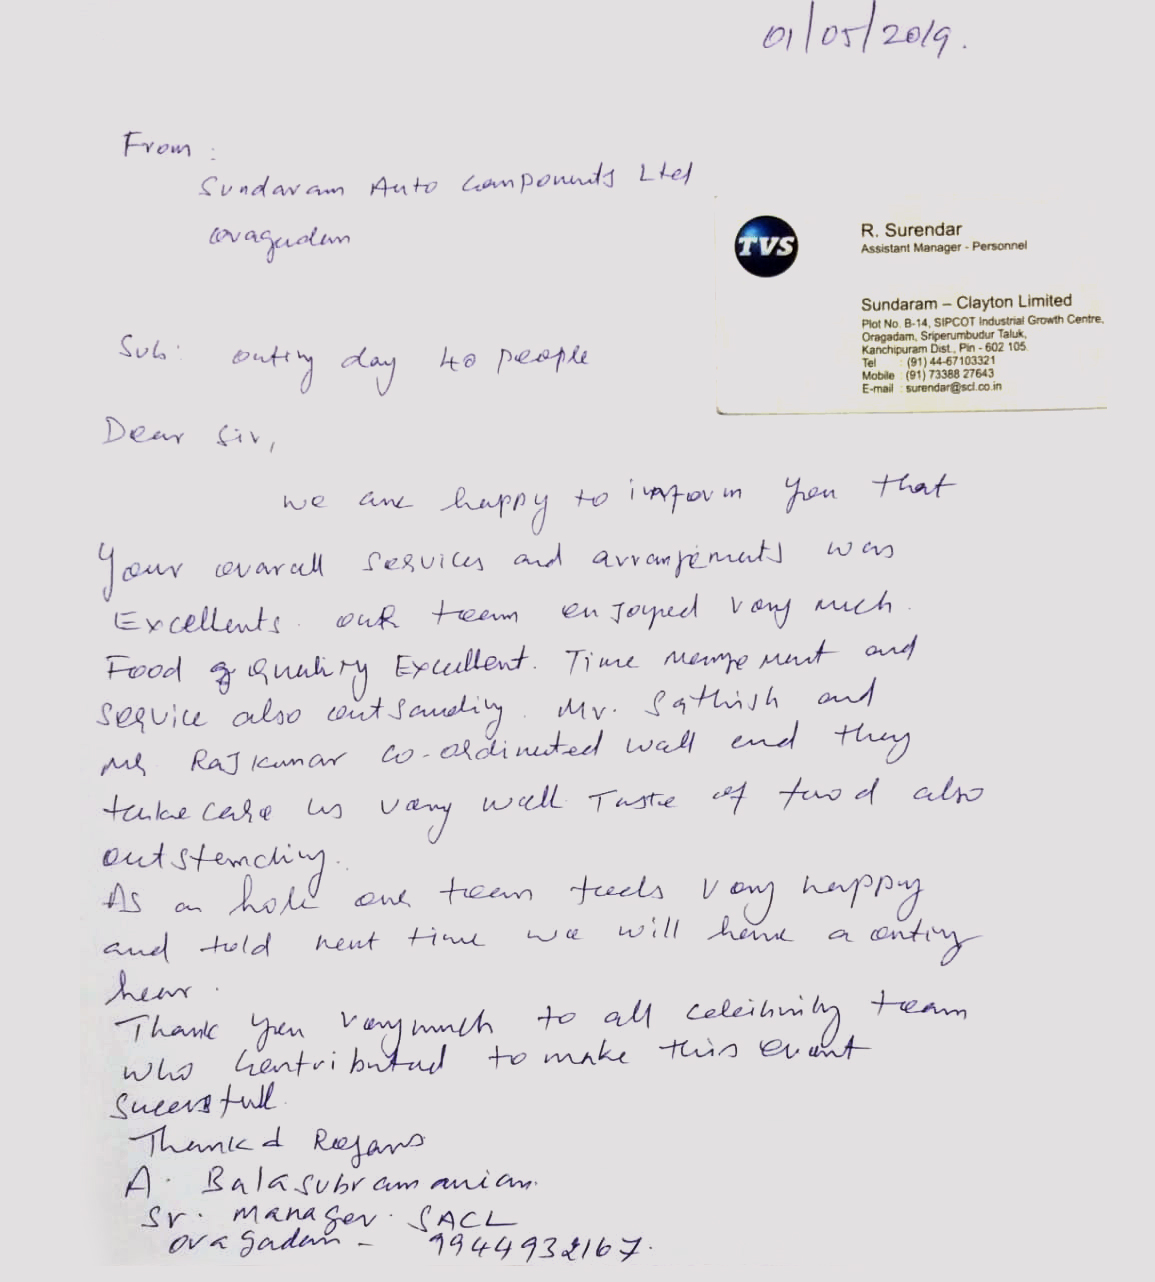 01/05/2019.
From :
Sundaram Auto Components Ltd
oragadam
TVS
R. Surendar
Assistant Manager - Personnel
Sundaram – Clayton Limited
Plot No. B-14, SIPCOT Industrial Growth Centre,
Oragadam, Sriperumbudur Taluk,
Kanchipuram Dist., Pin - 602 105.
Tel : (91) 44-67103321
Mobile : (91) 73388 27643
E-mail : surendar@scl.co.in
Sub: outing day 40 people
Dear Sir,
we are happy to inform you that
Your overall services and arrangements was
Excellents. our team enjoyed very much.
Food & Quality Excellent. Time and
service also outsanding. Mr. Sathish and
Mr Rajkumar co-ordinated well and they
take care us very well. Taste of food also
outstanding.
As a hole our team feels very happy
and told next time we will have a outing
hear.
Thank you very much to all team
who contributed to make this event
Thank & Regars
A. Balasubramanian.
Sr. Manager. SACL
oragadam - 9944932167.